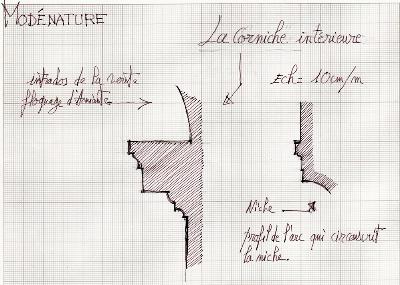 MODÉNATURE
La Corniche intérieure
intrados de la voute
Ech = 10cm/m
floquage d'Amiante
Niche
profil de l'arc qui circonscrit
la niche.